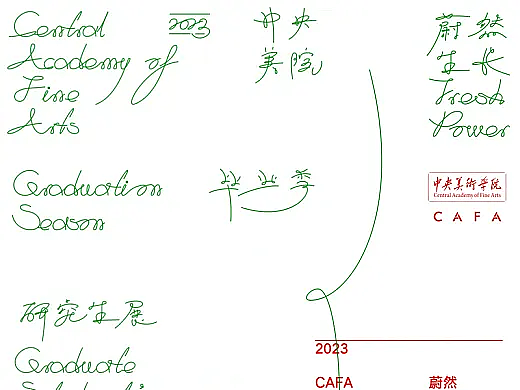 Central
Academy of
Fine
Arts
2023
中央
美院
蔚然
生长
Fresh
Power
中央美術學院
Central Academy of Fine Arts
CAFA
Graduation
Season
毕业季
研究生展
Graduate
2023
CAFA
蔚然